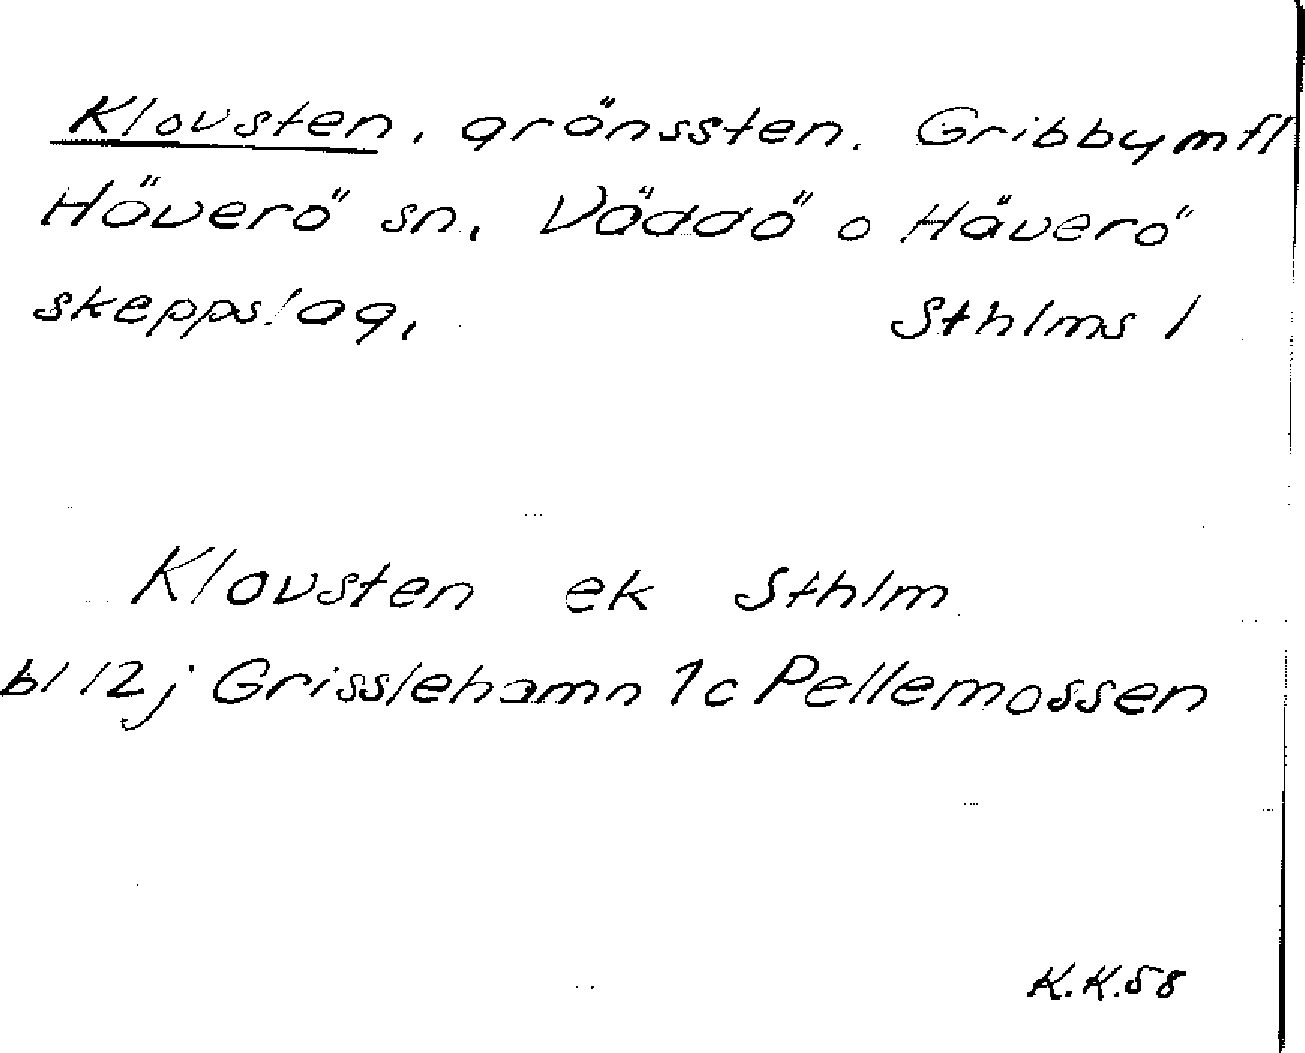 Klovsten, gränssten. Gribbymfl
Häverö sn, Väddö o Häverö
skeppslag, Sthlms l
Klovsten ek Sthlm
bl 12j Grisslehamn 1c Pellemossen
K.K.58